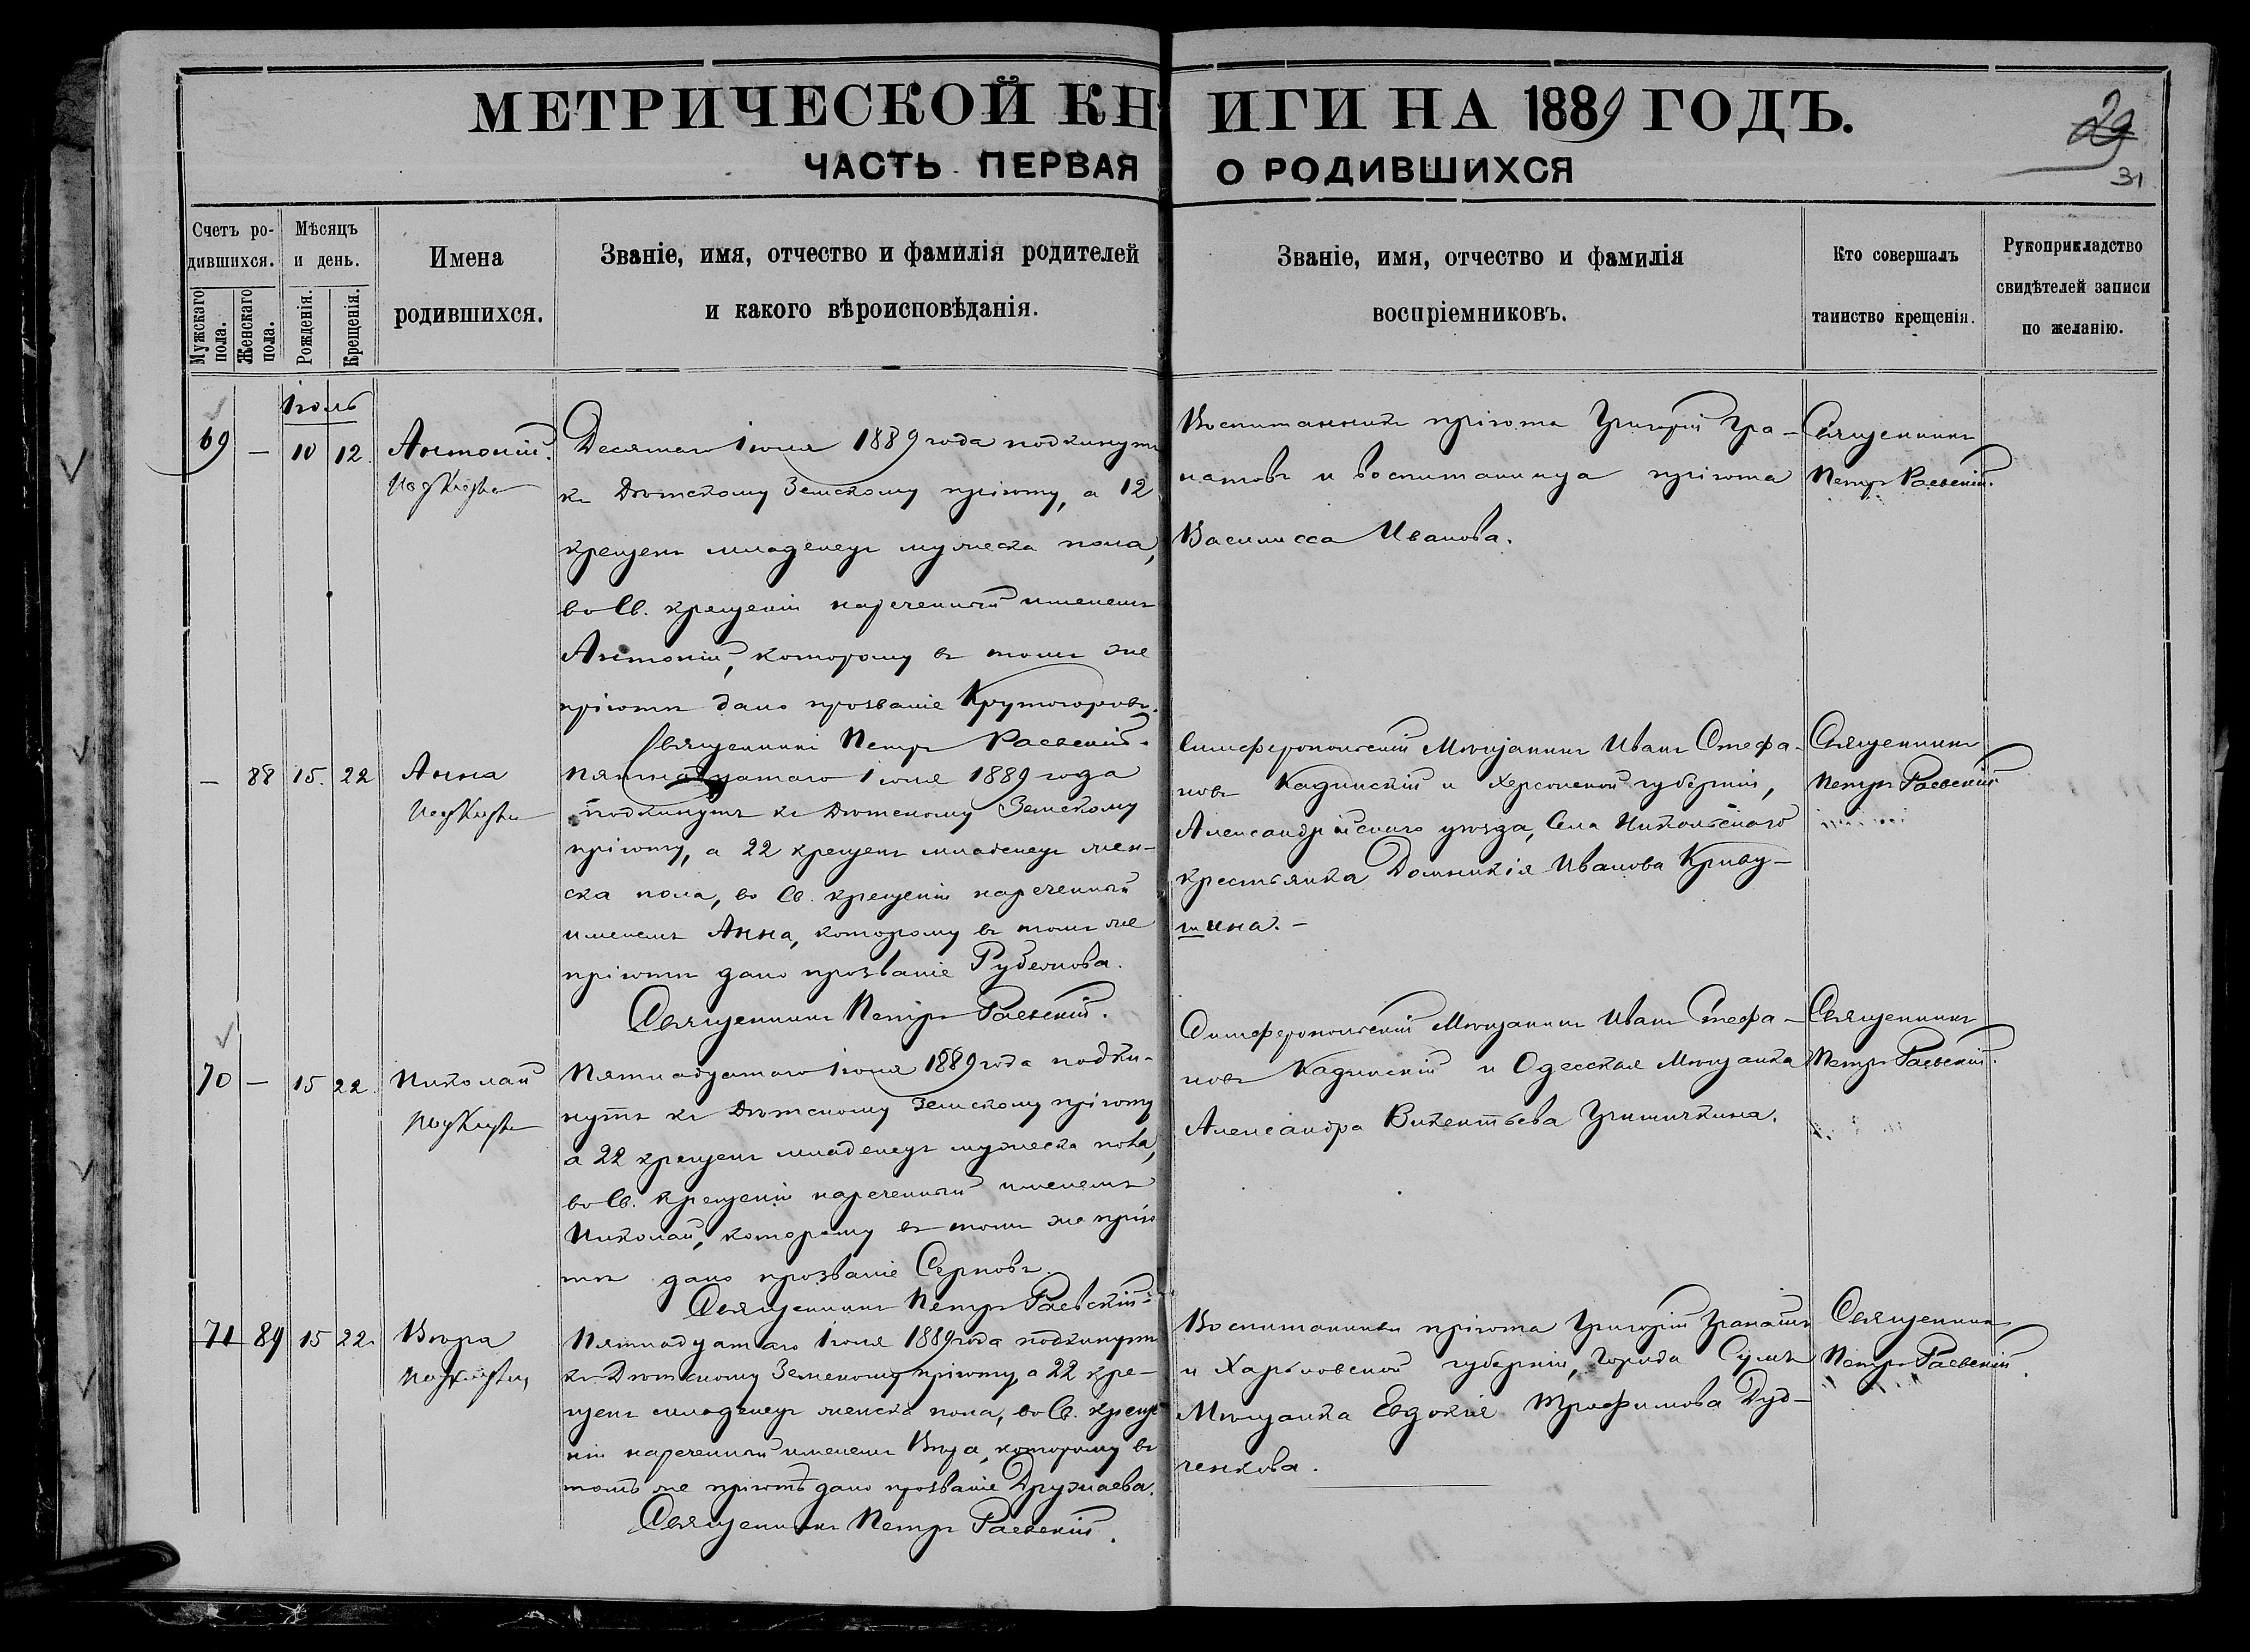 МЕТРИЧЕСКОЙ КНИГИ НА 1889 ГОДЪ.
ЧАСТЬ ПЕРВАЯ О РОДИВШИХСЯ
29
31
Счетъ родившихся.
Мужскаго пола.
Женскаго пола.
Мѣсяцъ и день.
Рожденія.
Крещенія.
Имена родившихся.
Званіе, имя, отчество и фамилія родителей
и какого вѣроисповѣданія.
Званіе, имя, отчество и фамилія
воспріемниковъ.
Кто совершалъ
таинство крещенія.
Рукоприкладство
свидѣтелей записи
по желанію.
Іюль
69 — 10 12. Антоній.
Десятаго Іюля 1889 года подкинутъ
къ Дѣтскому Земскому пріюту, а 12
крещенъ младенецъ мужеска пола,
во Св. крещеніи нареченный именемъ
Антоній, которому въ томъ же
пріютѣ дано прозваніе Крутогоровъ.
Священникъ Петръ Раевскій.
Воспитанникъ пріюта Григорій Гра-
натовъ и воспитанница пріюта
Василисса Иванова.
Священникъ
Петръ Раевскій.
— 88 15. 22 Анна
Пятнадцатаго Іюля 1889 года
подкинутъ къ Дѣтскому Земскому
пріюту, а 22 крещенъ младенецъ жен-
ска пола, во Св. крещеніи нареченный
именемъ Анна, которому въ томъ же
пріютѣ дано прозваніе
Священникъ Петръ Раевскій.
Симферопольскій Мѣщанинъ Иванъ Стефа-
новъ Кадинскій и Херсонской губерніи,
Александрійскаго уѣзда, Села Никольскаго
крестьянка Домникія Иванова Криву-
шина. —
Священникъ
Петръ Раевскій
70 — 15 22. Николай
Пятнадцатаго Іюля 1889 года подки-
нутъ къ Дѣтскому Земскому пріюту
а 22 крещенъ младенецъ мужеска пола,
во Св. крещеніи нареченный именемъ
Николай, которому въ томъ же прію
тѣ дано прозваніе Серповъ.
Священникъ Петръ Раевскій.
Симферопольскій Мѣщанинъ Иванъ Стефа-
новъ Кадинскій и Одесская Мѣщанка
Александра Викентьева
Священникъ
Петръ Раевскій.
71 89 15 22. Вѣра
Пятнадцатаго Іюля 1889 года подкинутъ
къ Дѣтскому Земскому пріюту, а 22 кре-
щенъ младенецъ женска пола, во Св. креще
ніи нареченный именемъ Вѣра, которому въ
томъ же пріютѣ дано прозваніе Дружаева.
Священникъ Петръ Раевскій.
Воспитанникъ пріюта Григорій
и Харьковской губерніи, Города Сумъ
Мѣщанка Евдокія Трофимова Дуд-
ченкова.
Священникъ
Петръ Раевскій.